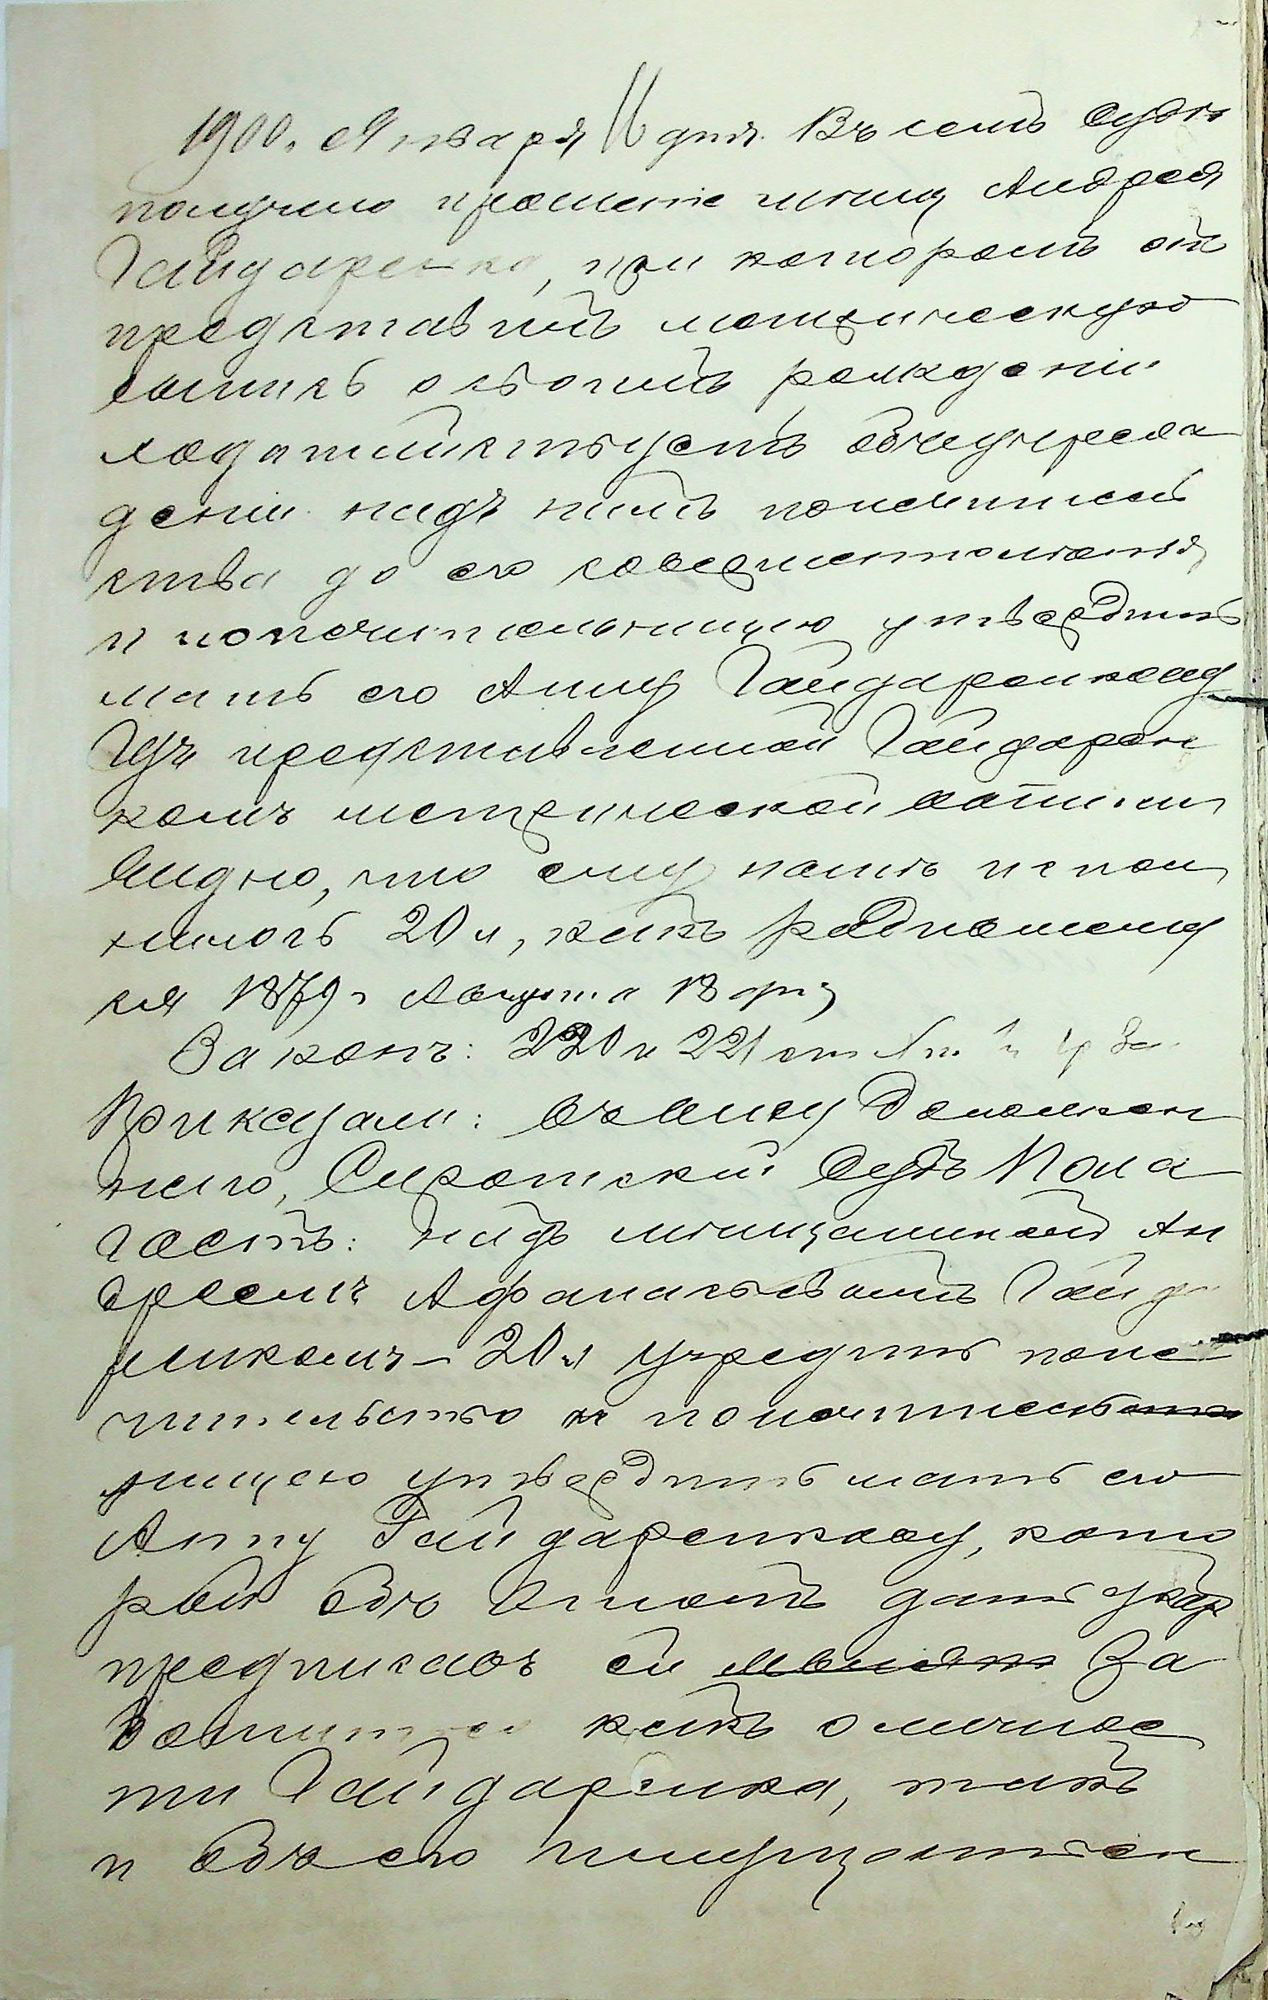 1900 г. Января 11 дня. Въ семъ Судѣ
получено прошеніе мѣщ. Андрея
Гайдаренка, при которомъ онъ
представилъ метрическую
выпись о своемъ рожденіи
ходатайствуетъ объ учреж
деніи надъ нимъ попечитель
ства до его совершеннолѣтія
и попечительницею утвердить
мать его Анну Гайдаренкову
Изъ представленной Гайдарен
комъ метрической выписи
видно, что ему нынѣ испол
нилось 20 л, какъ родившему
ся 1879 г Августа 18 дня
Законъ: 220 и 221 ст
Приказали: въ виду доложен
наго, Сиротскій Судъ Пола
гаетъ: надъ мѣщаниномъ Ан
дреемъ Афанасьевымъ Гайда
ренкомъ – 20 л учредить попе
чительство и попечитель
ницею утвердить мать его
Анну Гайдаренкову, кото
рой объ этомъ дать указ
предписавъ ей За
ботиться какъ о личнос
ти Гайдаренка, такъ
и объ его имуществен